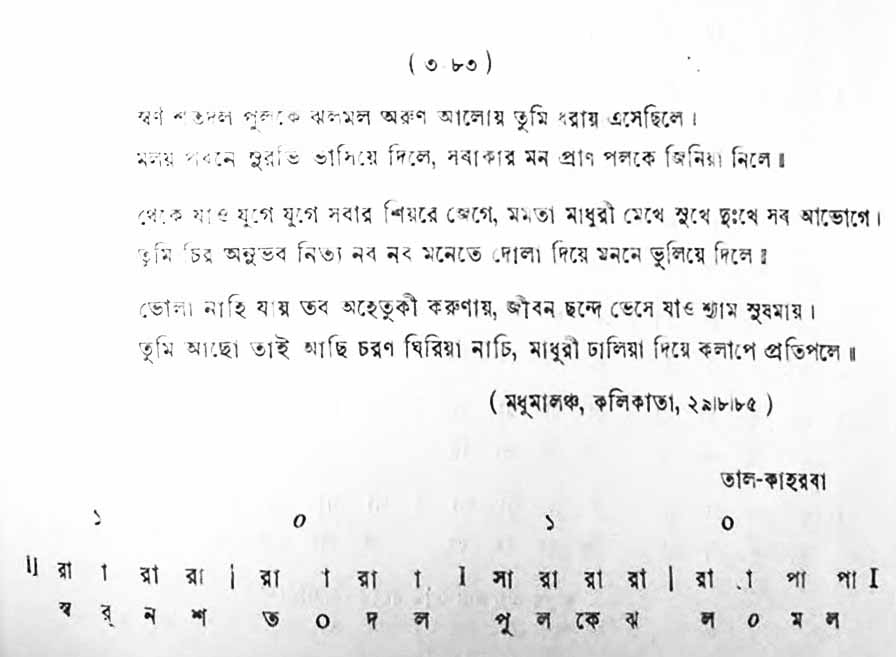 ( ৩ ৮৩ )
স্বর্ণ শতদল পুলকে ঝলমল অরুণ আলোয় তুমি ধরায় এসেছিলে ।
মলয় পবনে সুরভি ভাসিয়ে দিলে, সবাকার মন প্রাণ পলকে জিনিয়া নিলে ॥
থেকে যাও যুগে যুগে সবার শিয়রে জেগে, মমতা মাধুরী মেখে সুখে দুঃখে সব আভোগে ।
তুমি চির অনুভব নিত্য নব নব মনেতে দোলা দিয়ে মননে ভুলিয়ে দিলে ॥
ভোলা নাহি যায় তব অহেতুকী করুণায়, জীবন ছন্দে ভেসে যাও শ্যাম সুষমায় ।
তুমি আছো তাই আছি চরণ ঘিরিয়া নাচি, মাধুরী ঢালিয়া দিয়ে কলাপে প্রতিপলে ॥
( মধুমালঞ্চ, কলিকাতা, ২৯।৮।৮৫ )
তাল-কাহরবা
১ ০ ১ ০
II রা া রা রা | রা া রা া I সা রা রা রা | রা া পা পা I
স্ব র্ ন শ ত ০ দ ল পু ল কে ঝ ল ০ ম ল